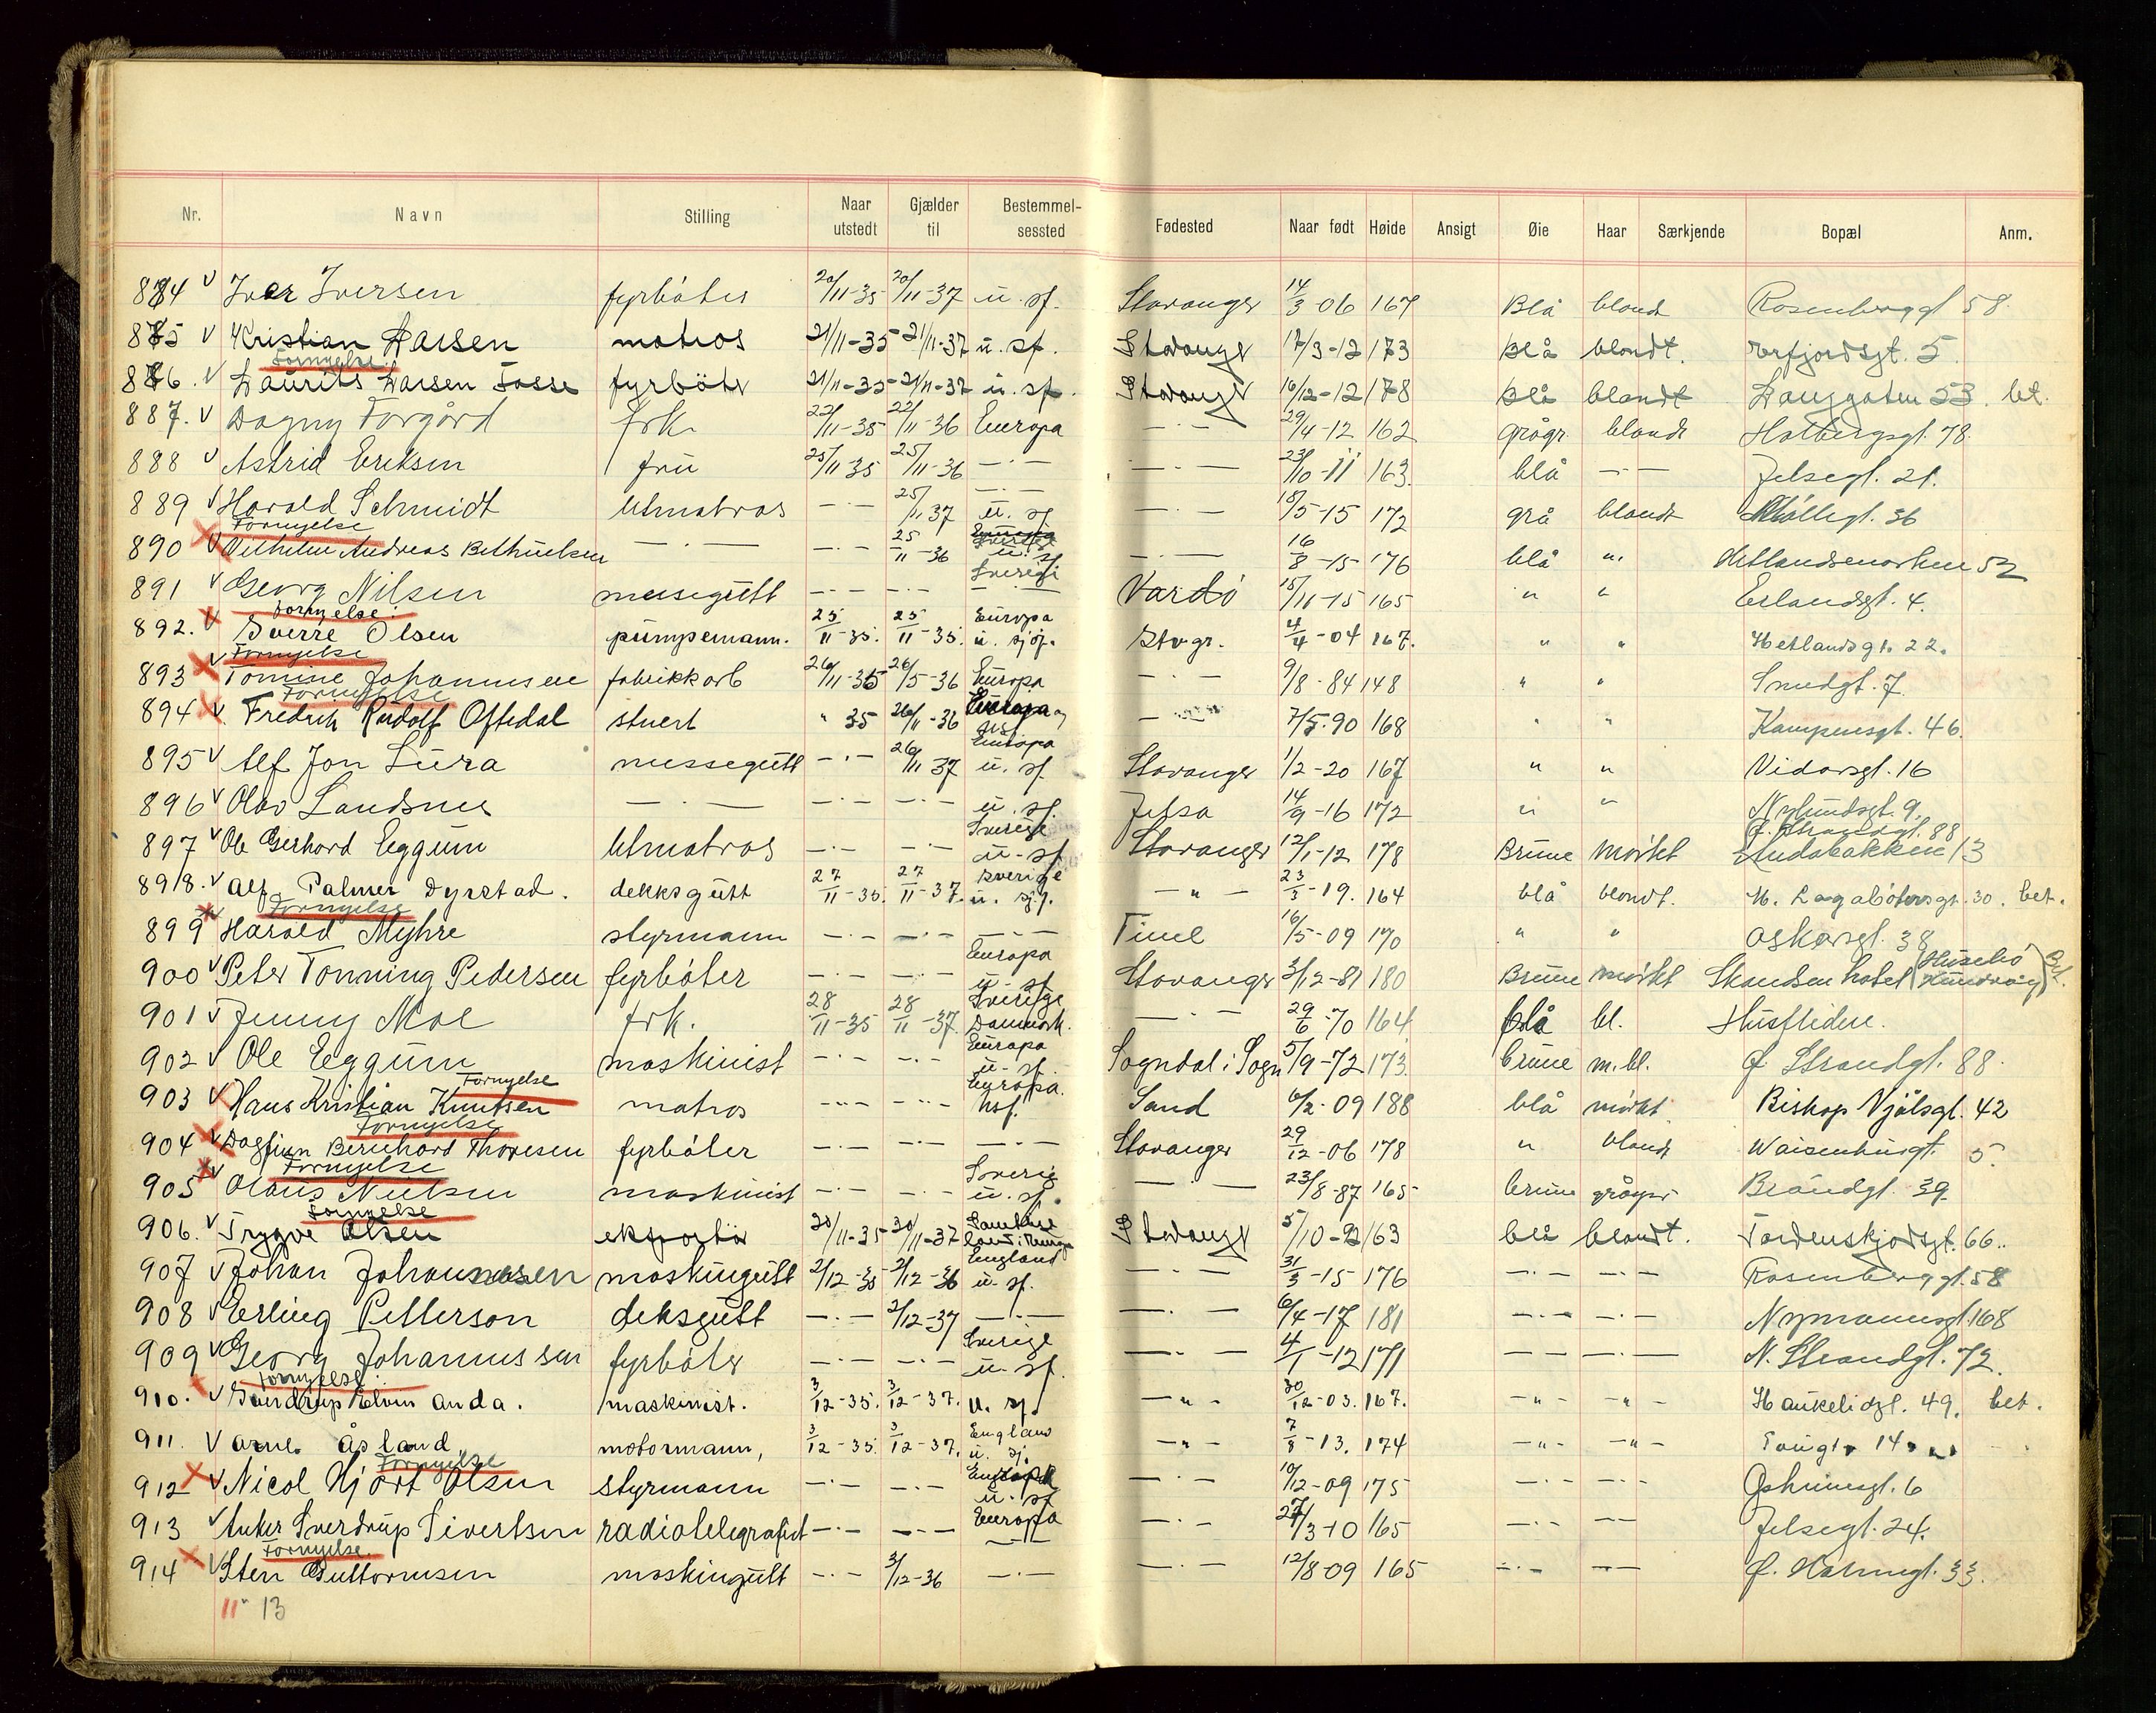 Nr. Navn Stilling Naar utstedt Gjælder til Bestemmelsessted Fødested Naar født Høide Ansigt Øie Haar Særkjende Bopæl Anm.
884 v Iver Iversen fyrböter 20/11-35 20/11-37 u. sf. Stavanger 14/3-06 167 Blå blond Rosenberggt 58.
885 v Kristian Larsen matros 21/11-35 21/11-37 u. sf. Stavanger 17/3-12 173 Blå blondt. 5
Fornyelse
886. v Laurits Larsen Fosse fyrböter 21/11-35 21/11-37 u. sf. Stavanger 16/12-12 178 Blå blondt Langgaten 53. bet.
887. v Dagny Torgård frk. 22/11-35 22/11-36 Europa —·— 29/4-12 162 grågr. blond Holbergsgt. 78.
888 v Astrid Eriksen fru 25/11 35 25/11-36 —·— —·— 23/10-11 163. blå —·— Jelsegt. 21.
889 v Harald Schmidt letmatros —·— 25/11 37 —·— u. sf —·— 15/5-15 172 grå blondt Möllegt. 36
Fornyelse
890 v Vilhelm Andreas Bethuelsen —·— —·— 25/11-36 u. sf —·— 16/8-15 176 blå " Hetlandsmarken 52
891 v Georg Nilsen messegutt —·— —·— Sverige —·— Vardö 15/11-15 165 " " Erlandsgt. 4.
Fornyelse.
892. v Sverre Olsen pumpemann. 25/11-35. 25/11-35. Europa u. sjöf. Stvgr. 4/4-04 167. " " Hetlandsgt. 22.
Fornyelse
893 v Tomine Johannesen fabrikkarb 26/11-35 26/5-36 Europa —·— 9/8-84 148 " " Smedgt. 7.
Fornyelse
894 v Fredrik Rudolf Oftedal stuert " 35 26/11-36 Europa og usf — 7/5.90 168 " " Kampensgt. 46.
895 v Alf Jon Lura messegutt —·— 26/11 37 Europa u. sf. Stavanger 1/2-20 167 " " Vidarsgt. 16
896 v Olav Landsnes —·— —·— —·— u. sf. Jelsa 14/9-16 172 " " Nylundsgt. 9.
897 v Ole Gerhard Eggum letmatros —·— —·— Sverige u. sf Stavanger 12/1-12 178 Brune mörket Ø. Strandgt. 88 13
898. v Alf Palmer Dyrstad. dekksgutt 27/11-35. 27/11-37. Sverige u. sj.f. —"— 23/3-19. 164 blå blondt. M. Lagabötersgt. 30. bet.
Fornyelse
899 v Harald Myhre styrmann —·— —·— —·— Tinel 16/5-09 170 " " Oskarsgt. 38
900 v Peter Tonning Pedersen fyrböter —·— —·— Europa u. sf Stavanger 3/12-81 180 Brune mörkt Skandsen hotel (Husebö
901 v Jenny Moe frk. 28/11-35 28/11-37. Sverige Danmark. —·— 29/6-70 164 blå bl. Husfliden.
902 v Ole Eggum maskinist —·— —·— Europa u. sf. Sogndal i Sogn 5/9-72 173. brune m.bl. Ø Strandgt. 88.
Fornyelse
903 v Hans Kristian Knutsen matros —·— —·— Europa. usf. Sand 6/2-09 188 blå mörkt. Biskop Njålsgt. 42
Fornyelse
904 v Dagfinn Bernhard Thoresen fyrböter —·— —·— —·— Stavanger 29/12-06 178 " blond Waisenhusgt. 5.
Fornyelse
905 v Olaus Nielsen maskinist —·— —·— Sverige u. sf. —·— 23/8-87 165 brune Brandgt. 39.
Fornyelse
906. v Trygve Olsen eksportör 30/11-35 30/11-37 Samtlige land i Europa Stavanger 5/10-92 163 blå blondt. Tordenskjoldsgt. 66.
907 v Johan Johannesen maskingutt 2/12-35 2/12-36 England u. sf. —·— 31/3-15 176 —·— —·— Rosenberggt. 58
908 v Erling Petterson deksgutt —·— 2/12-37 —·— —·— 6/4-17 181 —·— —·— Nymannsgt. 168
909 v Georg Johannessen fyrböter —·— —·— Sverige u. sf. —·— 4/1-12 171 —·— —·— N. Strandgt. 72.
Fornyelse.
910. v Sverdrup Elvin Anda. maskinist. 3/12-35. 3/12-37. u. sj. —"— 30/12-03. 167. —"— —"— Haukeligt. 49. bet.
911. v Arne Åsland. motormann, 3/12-35. 3/12-37. England u. sj. —"— 7/8-13. 174 —"— —"— Taugt. 14.
Fornyelse
912 v Nicol Hjort Olsen styrmann —·— —·— u. sf —·— 10/12-09 175 —·— —·— 6
913 v Anker Sverdrup Sivertsen radiotelegrafist —·— —·— Europa —·— 27/3-10 165 —·— —·— Jelsegt. 24.
Fornyelse.
914 v Sten Guttormsen maskingutt —·— 3/12-36 —·— —·— 12/8-09 165 —·— —·— Ø. Holmegt. 33.
11 13